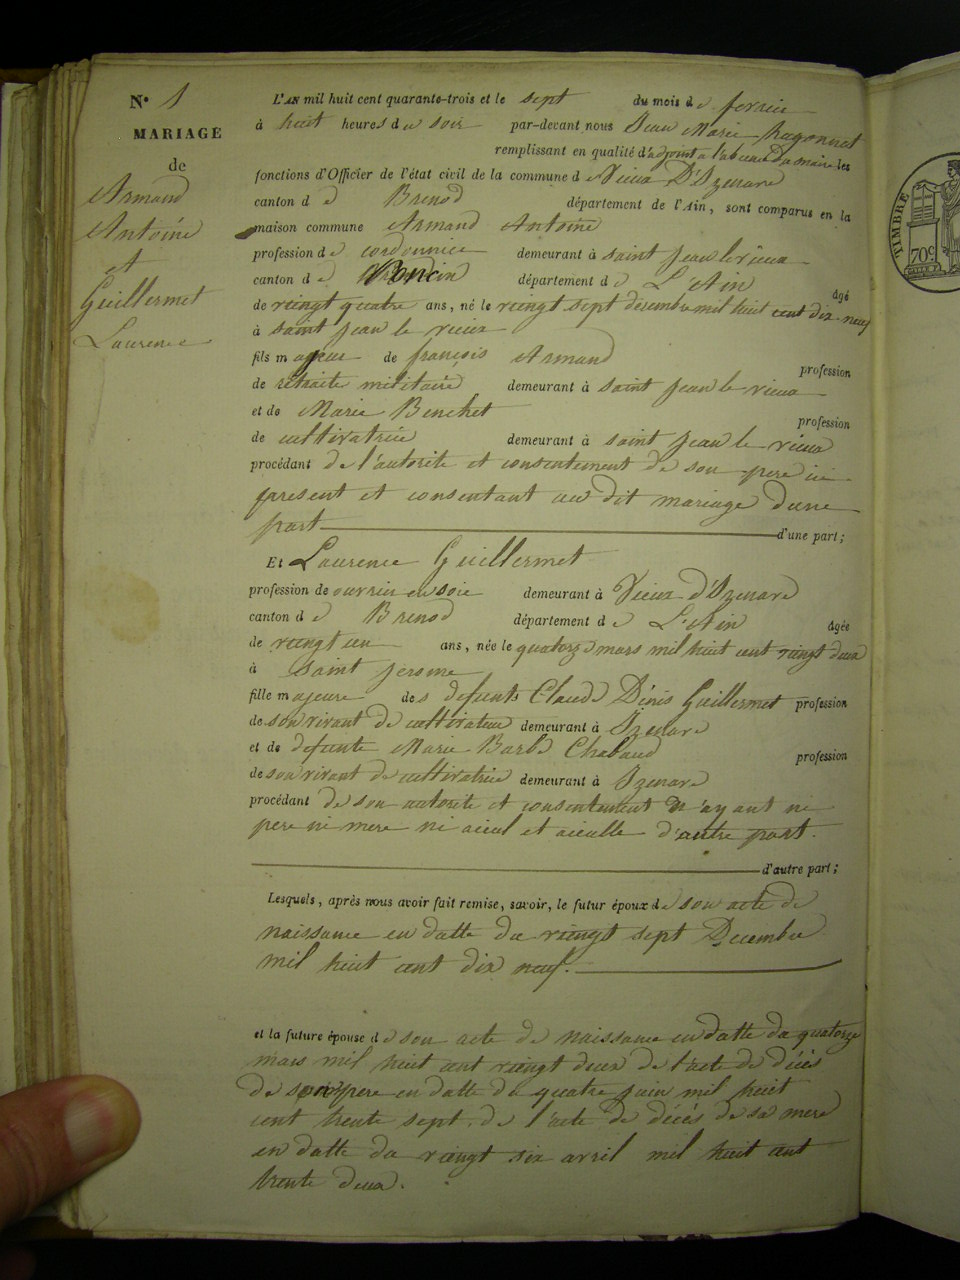 N° 1
MARIAGE
de
Armand
Antoine
et
Guillermet
Laurence
L'AN mil huit cent quarante-trois et le sept du mois de fevrier
à huit heures du soir par-devant nous Jean Marie hugonnet
remplissant en qualité d'adjoint a l'absence du maire les
fonctions d'Officier de l'état civil de la commune de Vieux D'Izenave
canton de Brenod département de l'Ain, sont comparus en la
maison commune Armand Antoine
profession de cordonnier demeurant à saint jean le vieux
canton de Poncin département de L'Ain âgé
de vingt quatre ans, né le vingt sept desembre mil huit cent dix neuf
à saint jean le vieux
fils majeur de françois Armand profession
de retraite militaire demeurant à saint jean le vieux
et de Marie Benchet profession
de cultivatrice demeurant à saint jean le vieux
procédant de l'autorite et consentement de son pere ici
present et consentant au dit mariage dune
part d'une part;
Et Laurence Guillermet
profession de ouvrier en soie demeurant à Vieux d'Izenave
canton de Brenod département de L'Ain âgée
de vingt un ans, née le quatorze mars mil huit cent vingt deux
à Saint jerome
fille majeure des defunts Claude Dénis Guillermet profession
de son vivant de cultivateur demeurant à Izenave
et de defunte Marie Barbe Chabaud profession
de son vivant de cultivatrice demeurant à Izenave
procédant de son autorité et consentement n'ayant ni
pere ni mere ni aieul et aieulle d'autre part.
d'autre part;
Lesquels, après nous avoir fait remise, savoir, le futur époux de son acte de
naissance en datte du vingt sept Decembre
mil huit cent dix neuf.
et la future épouse de son acte de naissance en datte du quatorze
mars mil huit cent vingt deux de l'acte de décès
de son pere en datte du quatre juin mil huit
cent trente sept. de l'acte de décès de sa mere
en datte du vingt six avril mil huit cent
trente deux.
TIMBRE
70c